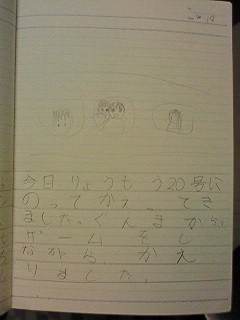 今日りょうもう20号に
のってかえってき
ました。ぐんまから、
ゲームをし
ながら、かえ
りました。